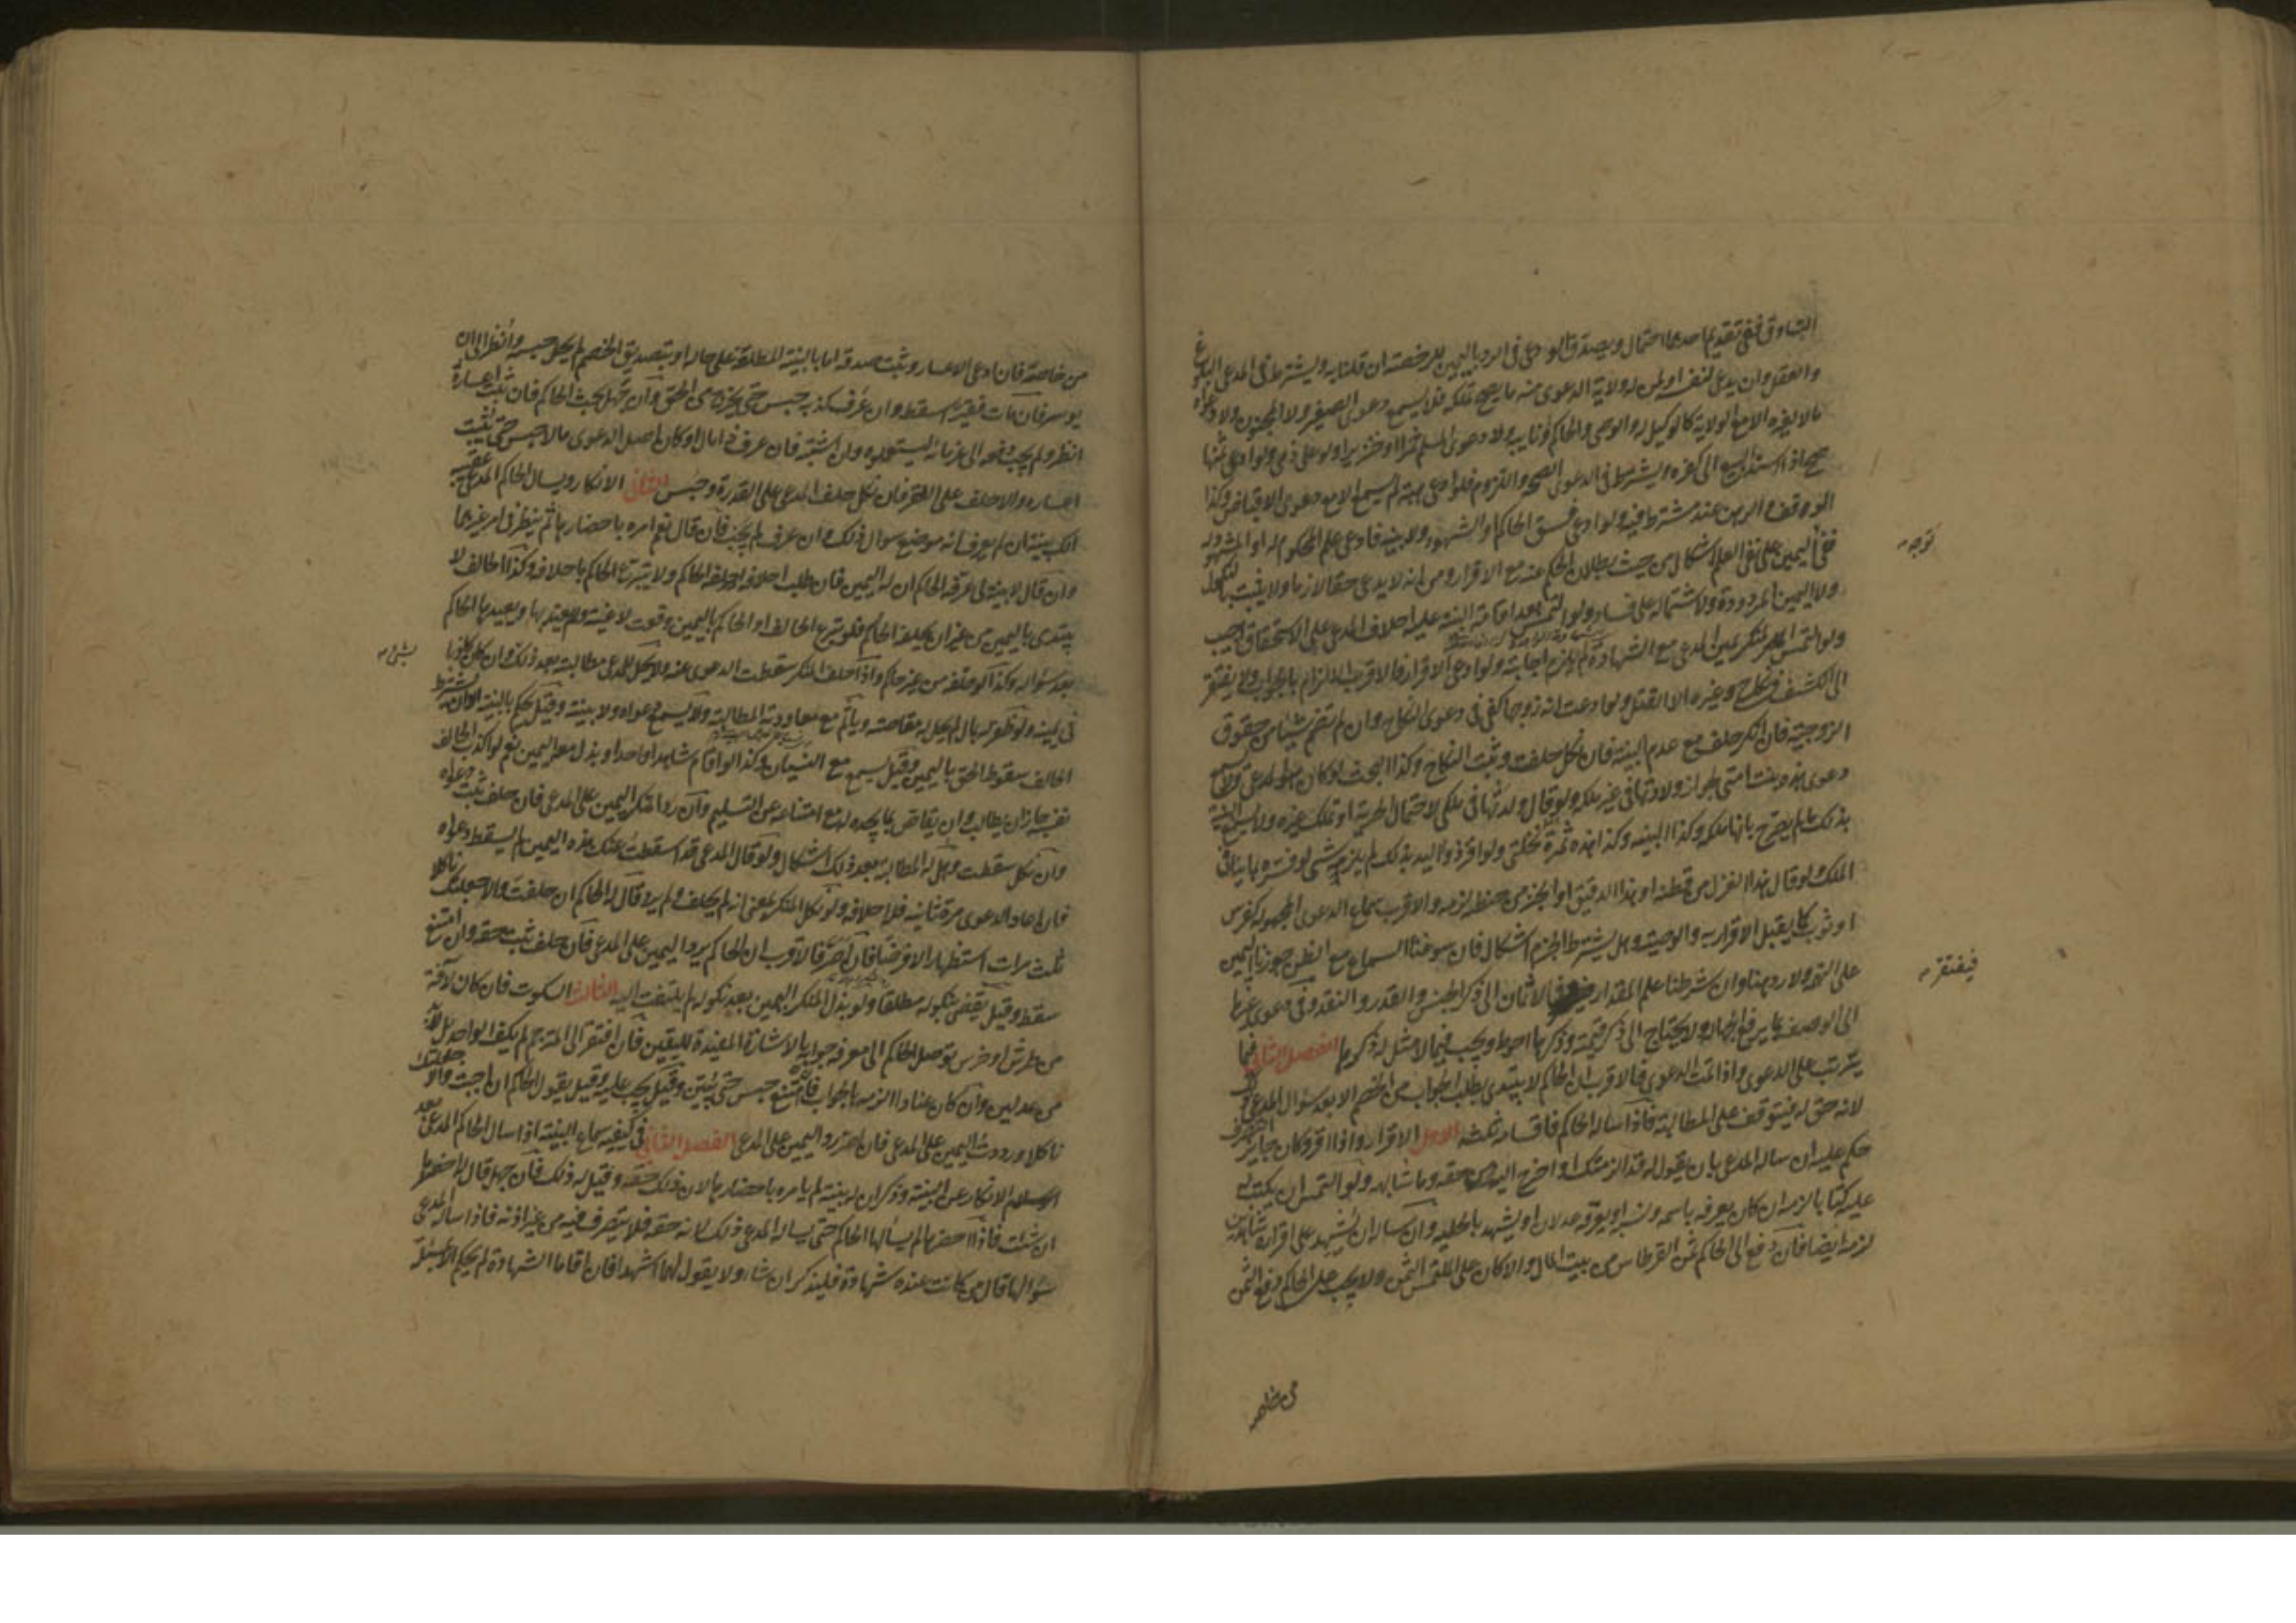 التساوق ففي تقديم احدهما احتمال ويصدق الودعي في الرد باليمين للرخصة ان قلنا به ويشترط في المدعي البلوغ
والعقل وان يدعي لنفسه او لمن له ولاية الدعوى عنه ما يصح تملكه فلا يسمع دعوى الصغير ولا المجنون ولا دعواه
مالا لغيره الا مع الولاية كالوكيل والوصي والحاكم ونايبه ولا دعوى المسلم خمرا او خنزيرا ولو على ذمي ولو ادعى ثمنها
صح اذا استند البيع الى كفره ويشترط في الدعوى الصحة واللزوم فلو ادعى هبة لم يسمع الا مع دعوى الاقباض وكذا
الوقف والرهن عند مشترطه فيه ولو ادعى فسق الحاكم او الشهود ولا بينة فادعى علم المحكوم له او المشهود له
ففي اليمين على نفي العلم اشكال من حيث بطلان الحكم عنه مع الاقرار ومن انه لا يدعي حقا لازما ولا يثبت بالنكول
ولا اليمين المردودة ولاشتماله على فساد ولو التمس بعد اقامة البينة عليه احلاف المدعي على الاستحقاق اجيب
ولو التمس المنكر يمين المدعي مع الشهادة لم يلزم اجابته ولو ادعى الاقرار فالاقرب الالزام بالجواب ولا يفتقر
الى الكشف في نكاح وغيره الا القتل ولو ادعت انه زوجها كفى في دعوى النكاح وان لم تضم شيئا من حقوق
الزوجية فان انكر حلف مع عدم البينة فان نكل حلفت وثبت النكاح وكذا البحث لو كان هو المدعي ولا تسمع
دعوى هذه بنت امتي لجواز ولادتها في غير ملكه ولو قال ولدتها في ملكي لاحتمال الحرية او تملك غيره ولا تسمع البينة
بذلك ما لم يصرح بانها ملكه وكذا البينة وكذا هذه ثمرة نخلتي ولو اقر ذو اليد بذلك لم يلزمه شي لو فسره بما ينافي
الملك ولو قال هذا الغزل من قطنه او هذا الدقيق او الخبز من حنطته لزمه والاقرب سماع الدعوى المجهولة كفرس
او ثوب كما يقبل الاقرار به والوصية وهل يشترط الجزم اشكال فان سوغنا السماع مع الظن جوزنا اليمين
على التهمة ولا رد هنا وان شرطنا علم المقدار في الاثمان الى ذكر الجنس والقدر والنقد وفي دعوى غيرها
الى الوصف بما يرفع الجهالة ولا يحتاج الى ذكر قيمته وذكرها احوط ويجب فيما لا مثل له ذكرها الفصل الثاني فيما
يترتب على الدعوى واذا تمت الدعوى فالاقرب ان الحاكم لا يبتدي بطلب الجواب من الخصم الا بعد سؤال المدعي ذلك
لانه حق له فيتوقف على المطالبة فاذا ساله الحاكم فاقسامه ثلثة الاول الاقرار واذا اقر وكان جايز التصرف
حكم عليه ان ساله المدعي بان يقول له قد الزمتك او اخرج اليه من حقه وما شابهه ولو التمس ان يكتب له
عليه كتابا لزمه ان كان يعرفه باسمه ونسبه او يعرفه عدلان او يشهد بالحلية وان ساله ان يشهد على اقراره شاهدين
لزمه ايضا فان دفع الى الحاكم ثمن القرطاس من بيت المال والا كان على الملتمس الثمن ولا يجب على الحاكم دفع الثمن
توجه
فيفتقر
من خاصه
من خاصته فان ادعى الاعسار وثبت صدقه اما بالبينة المطلقة على حاله او بتصديق الخصم لم يحل حبسه وانظر الى ان
يوسر فان مات فقيرا سقط وان عرف كذبه حبس حتى يخرج من الحق وان جهل بحث الحاكم فان ثبت اعساره
انظر ولم يجب دفعه الى غرمائه ليستعملوه وان اشتبه فان عرف ذا مال او كان اصل الدعوى مالا حبس حتى يثبت
اعساره والا حلف على الفقر فان نكل حلف المدعي على القدرة وحبس الثاني الانكار ويسال الحاكم المدعي عقيبه
الك بينة ان لم يعرف انه موضع سوال ذلك وان عرف لم يجب فان قال نعم امره باحضارها ثم ينظر في امر غيرهما
وان قال لا بينة لي عرفه الحاكم ان له اليمين فان طلب احلافه احلفه الحاكم ولا يتبرع الحاكم باحلافه وكذا الحالف لا
يبتدي باليمين من غير ان يحلفه الحاكم فلو تبرع الحالف او الحاكم باليمين وقعت لاغية ولا يعتد بها ويعيدها الحاكم
بعد سواله وكذا لو حلفه من غير حاكم واذا حلف المنكر سقطت الدعوى عنه ولا يحل للمدعي مطالبته بعد ذلك وان كان كاذبا
في يمينه ولو ظفر له بمال لم يحل له مقاصته وياثم مع معاودته المطالبة ولا يسمع دعواه ولا بينته وقيل يحكم بالبينة ان لم يشترط
الحالف سقوط الحق باليمين وقيل يسمع مع النسيان وكذا لو اقام شاهدا واحدا وبذل معه اليمين نعم لو اكذب الحالف
نفسه جاز ان يطالب وان يقاص مما يجده له مع امتناعه عن التسليم وان رد المنكر اليمين على المدعي فان حلف ثبت دعواه
وان نكل سقطت وهل له المطالبة بعد ذلك اشكال ولو قال المدعي قد اسقطت عنك هذه اليمين لم يسقط دعواه
فان اعاد الدعوى مرة ثانية فله احلافه ولو نكل المنكر بمعنى انه لم يحلف ولم يرد قال له الحاكم ان حلفت والا جعلتك ناكلا
ثلث مرات استظهارا لا فرضا فان اصر فالاقرب ان الحاكم يرد اليمين على المدعي فان حلف ثبت حقه وان امتنع
سقط وقيل يقضى بنكوله مطلقا ولو بذل المنكر اليمين بعد نكوله لم يلتفت اليه الثالث السكوت فان كان لافة
من طرش او خرس توصل الحاكم الى معرفة جوابه بالاشارة المفيدة لليقين فان افتقر الى المترجم لم يكف الواحد بل لا بد
من عدلين وان كان عنادا الزمه بالجواب فان امتنع حبس حتى يبين وقيل يجبر عليه وقيل يقول الحاكم ان اجبت والا جعلتك
ناكلا ورددت اليمين على المدعي فان اصر رد اليمين على المدعي الفصل الثالث في كيفية سماع البينة اذا سال الحاكم المدعي بعد
الانكار عن البينة وذكر ان له بينة لم يامره باحضارها لان ذلك حقه وقيل له ذلك فان جهل قال له احضرها
ان شئت فاذا احضرها لم يسالها الحاكم حتى يساله المدعي ذلك لانه حقه فلا يتصرف فيه من غير اذنه فاذا ساله المدعي
سؤالها قال من كانت عنده شهادة فليذكر ان شاء ولا يقول لهما اشهدا فان اقاما الشهادة لم يحكم الا بمسئلة